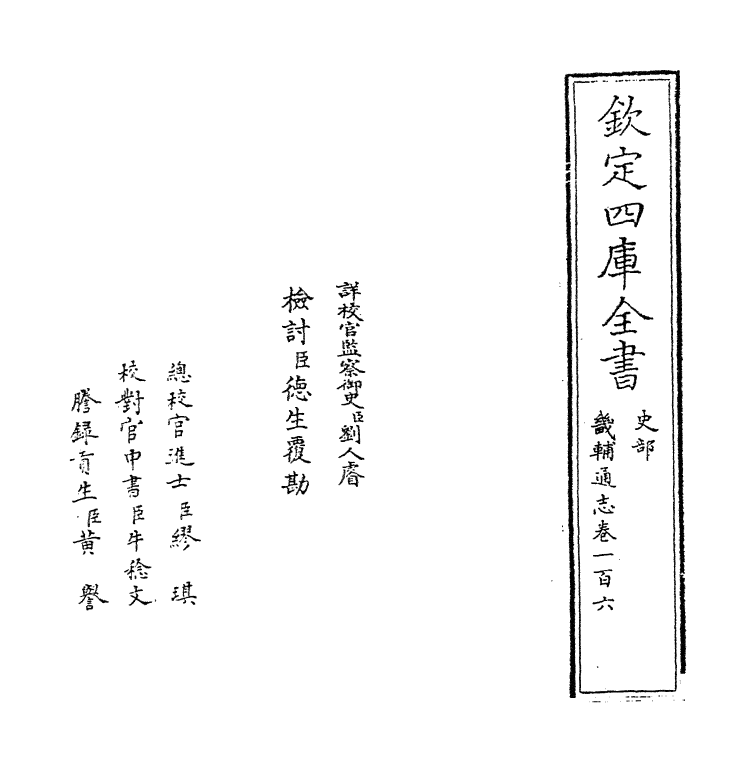 欽定四庫全書
史部
畿輔通志卷一百六
詳校官監察御史臣劉人睿
檢討臣德生覆勘
總校官進士臣繆琪
校對官中書臣牛稔文
謄録貢生臣黄譽